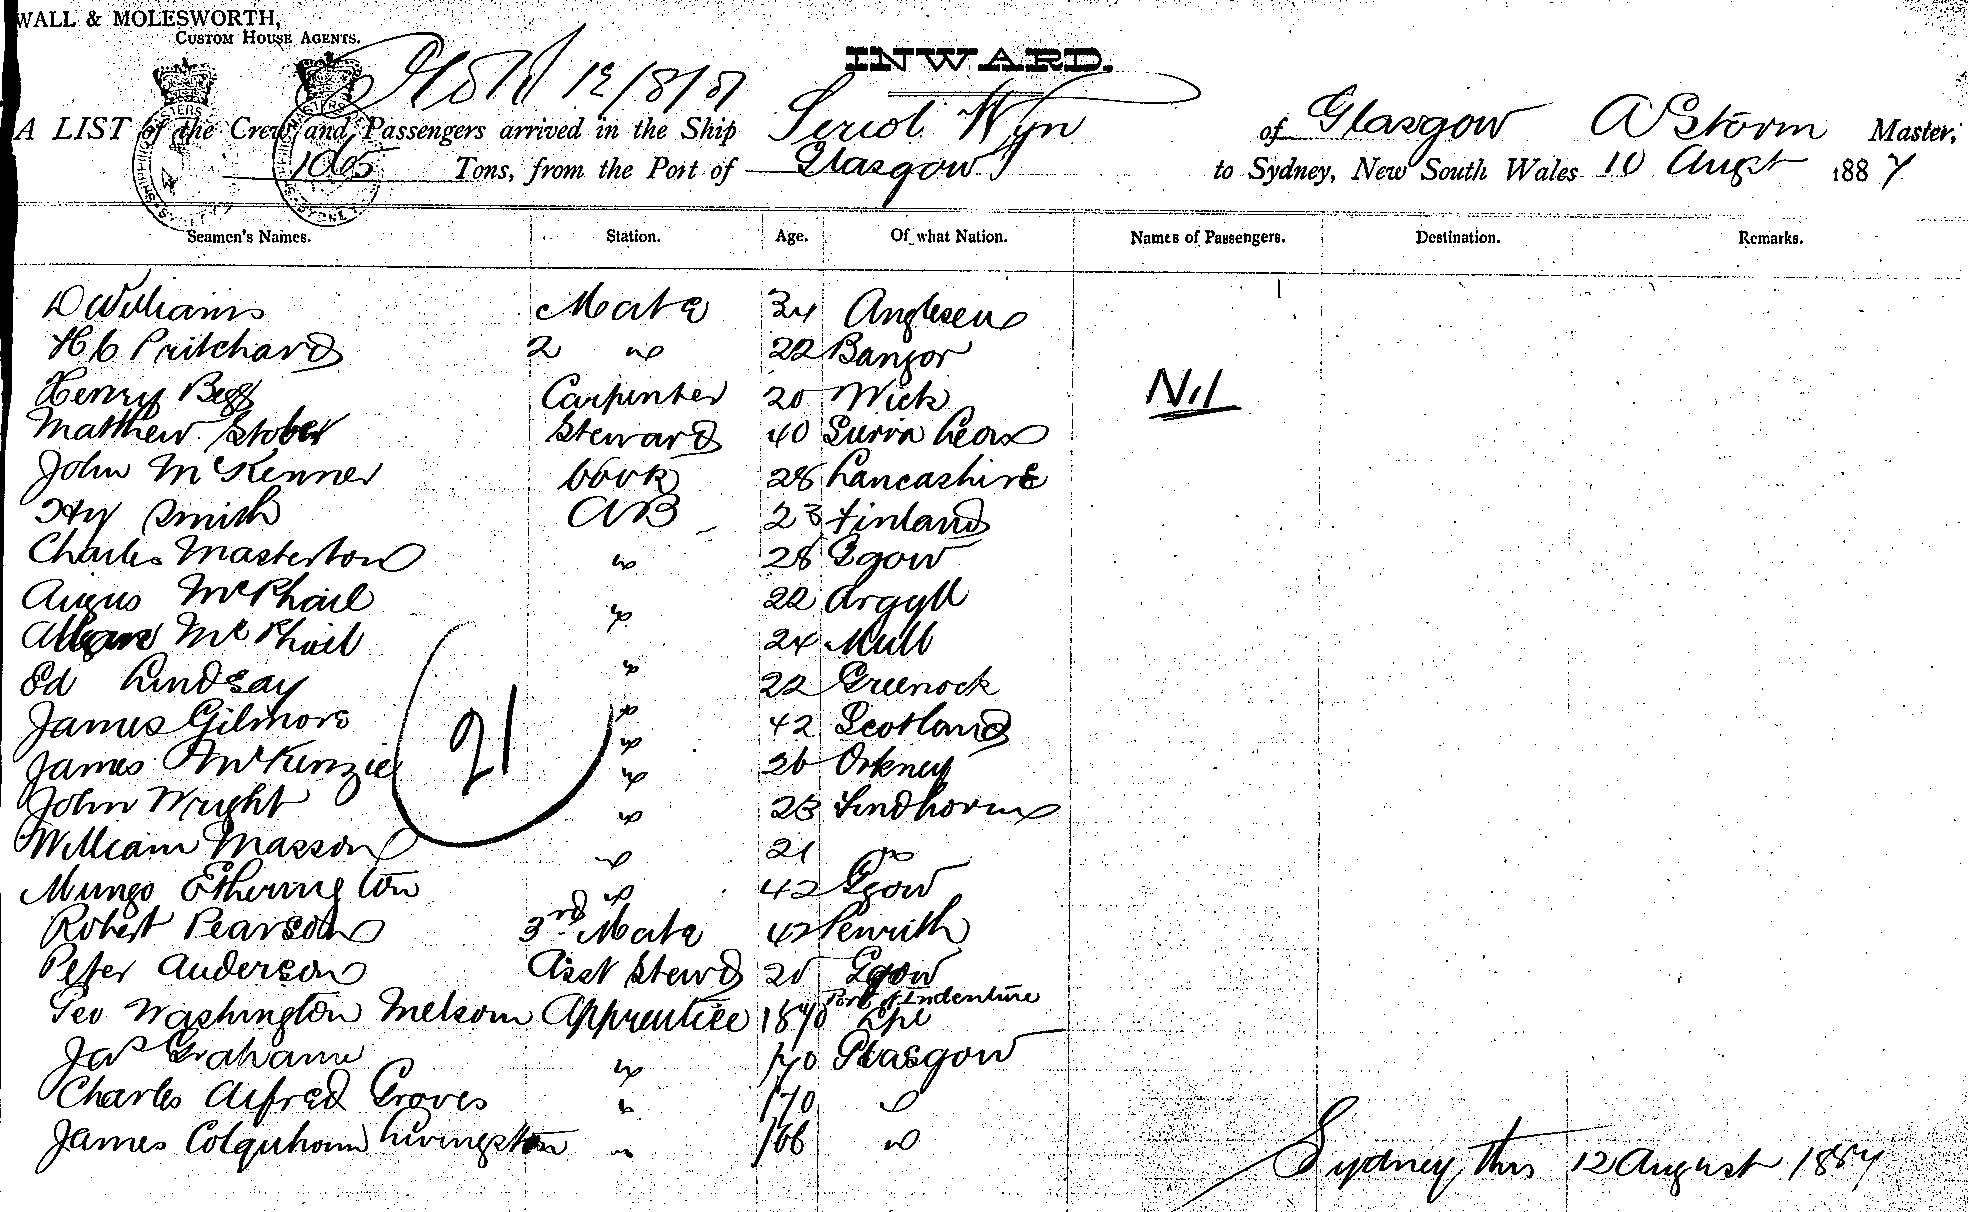 WALL & MOLESWORTH,
CUSTOM HOUSE AGENTS.
12/8/87
INWARD.
A LIST of the Crew and Passengers arrived in the Ship Seriol Wyn of Glasgow A Storm Master,
1065 Tons, from the Port of Glasgow to Sydney, New South Wales 10 Augst 1887
Seamen's Names. Station. Age. Of what Nation. Names of Passengers. Destination. Remarks.
D Williams Mate 34 Anglesea
H C Pritchard 2 " 22 Bangor
Nil
Henry Begg Carpenter 20 Wick
Matthew Stober Steward 40 Surra Leon
John McKenner Cook 28 Lancashire
Hy Smith AB 23 Finland
Charles Masterton " 28 Ggow
Angus McPhail " 22 Argyll
McPhail " 24 Mull
Ed Lindsay " 22 Greenock
James Gilmore " 42 Scotland
21
James McKenzie " 26 Orkney
John Wright " 23 Findhorn
William Masson " 21 "
Mungo Etherington " 42 Ggow
Robert Pearson 3rd Mate 42 Penrith
Peter Anderson Asst Stewd 20 Ggow
Port of Indenture
Geo Washington Melsom Apprentice 1870 Lpl
Jas Graham " /70 Glasgow
Charles Alfred Groves " /70 "
James Colquhoun Livingston " /68 "
Sydney, this 12 August 1887